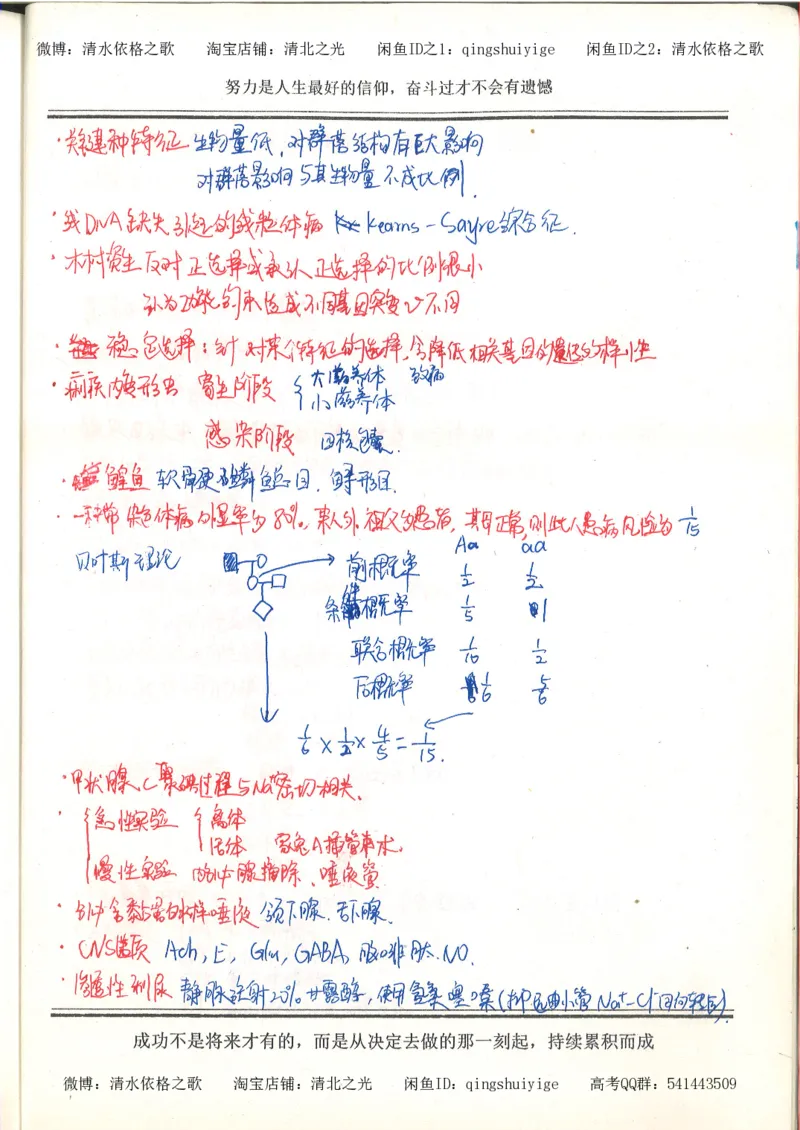 微博：清水依格之歌 淘宝店铺：清北之光 闲鱼ID之1：qingshuiyige 闲鱼ID之2：清水依格之歌
努力是人生最好的信仰，奋斗过才不会有遗憾
·关键种特征 生物量低，对群落结构有巨大影响
对群落影响与其生物量不成比例.
·线DNA缺失引起的线粒体病 Kearns-Sayre综合征.
·木村资生反对正选择或承认正选择的比例很小
认为功能约束造成不同基因突变 不同
·稳定选择：针对某个特征的选择，会降低相关基因的遗传多样性
·痢疾内变形虫 寄生阶段 大滋养体 致病
小滋养体
感染阶段 四核包囊.
·鲟鱼 软骨硬鳞鱼总目.鲟形目.
·一种常染色体病外显率为80%。某人外祖父为患者，其母正常，则此人患病风险为 1/15
贝叶斯理论
Aa aa
前概率 1/2 1/2
条件概率 1/5 1
联合概率 1/10 1/2
后概率 1/6 5/6
1/6 × 1/2 × 4/5 = 1/15.
·甲状腺C聚碘过程与Na⁺密切相关.
·急性实验 离体
活体 家兔A插管
慢性实验 腺摘除、唾液瘘
·分泌含黏蛋白水样唾液 颌下腺.舌下腺.
·CNS递质 Ach, E, Glu, GABA, 脑啡肽.NO.
·渗透性利尿 静脉注射20%甘露醇，使用氢氯噻嗪(抑远曲小管Na⁺-Cl⁻同向转运).
成功不是将来才有的，而是从决定去做的那一刻起，持续累积而成
微博：清水依格之歌 淘宝店铺：清北之光 闲鱼ID：qingshuiyige 高考QQ群：541443509